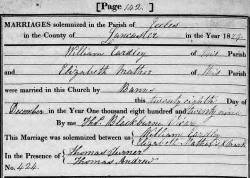 [Page 142.]
MARRIAGES solemnized in the Parish of Eccles
in the County of Lancaster in the Year 182
William Eardley of this Parish
and
Elizabeth Mather of this Parish
were married in this Church by Banns
this twenty eighth Day of
December in the Year One thousand eight hundred and twenty
By me Thos. Blackburne Vicar
This Marriage was solemnized between us William Eardley
Elizabeth Mather
In the Presence of Thomas Turner
Thomas Andrew
No. 424.